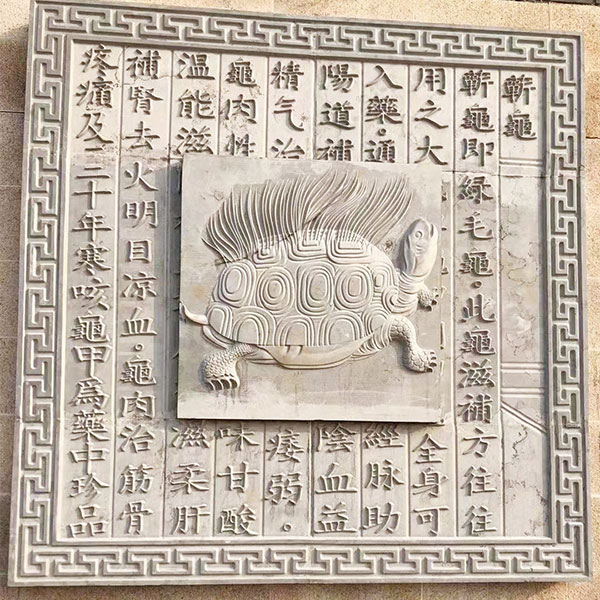 蘄龜
蘄龜即綠毛龜。此龜滋補方往往
用之大全身可
入藥。通經脉助
陽道補陰血益
精气治痿弱。
龜肉性味甘酸
溫能滋滋柔肝
補腎去火明目凉血。龜肉治筋骨
疼癀及一二十年寒咳龜甲爲藥中珍品